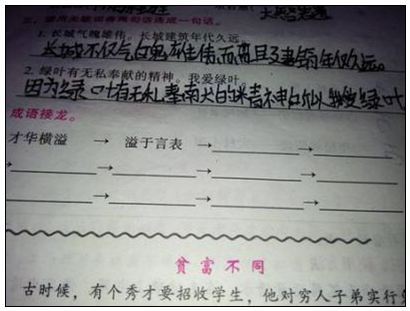 三、请用关联词将两句话连成一句话。
1. 长城气魄雄伟。长城建筑年代久远。
长城不仅气魄雄伟，而且建筑年代久远。
2. 绿叶有无私奉献的精神。我爱绿叶。
因为绿叶有无私奉献的精神，所以我爱绿叶
成语接龙。
才华横溢 → 溢于言表 → →
→ → → →
→ → →
贫富不同
古时候，有个秀才要招收学生，他对穷人子弟实行